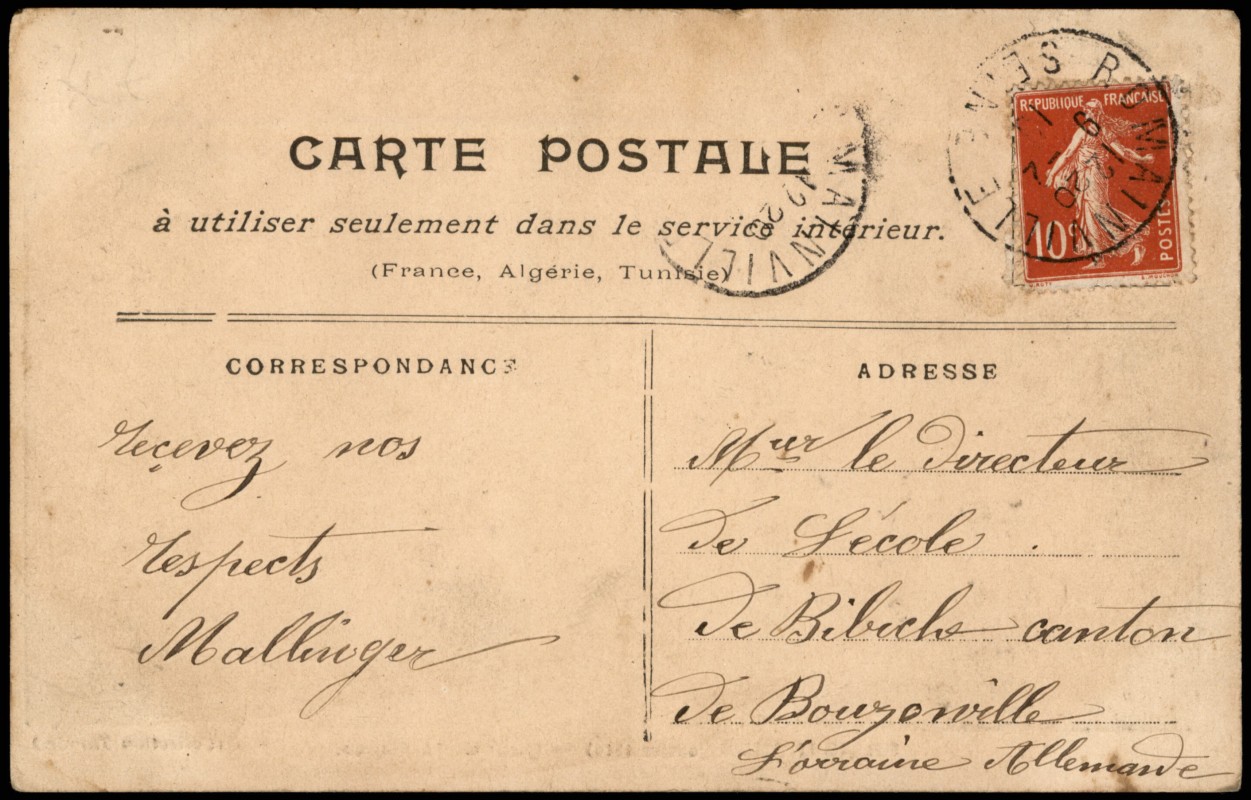 CARTE POSTALE
à utiliser seulement dans le service intérieur.
(France, Algérie, Tunisie)
REPUBLIQUE FRANÇAISE
10c
POSTES
ROMAINVILLE SEINE
CORRESPONDANCE
ADRESSE
reçevez nos
respects
Mallinger
Mur le Directeur
de L'école
de Bibiche canton
de Bouzonville
Lorraine Allemande